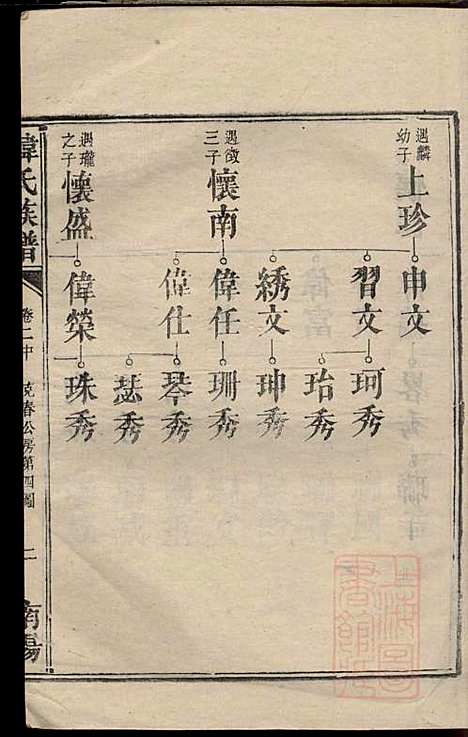 遇麟幼子 上珍
申文
習文 珂秀
珆秀
綉文 珅秀
遇徵三子 懷南
偉任 珊秀
偉仕 琴秀
瑟秀
遇瓏之子 懷盛
偉榮 珠秀
韓氏族譜
卷二中
堯春公房第四圖
二
南陽
上海圖書館藏